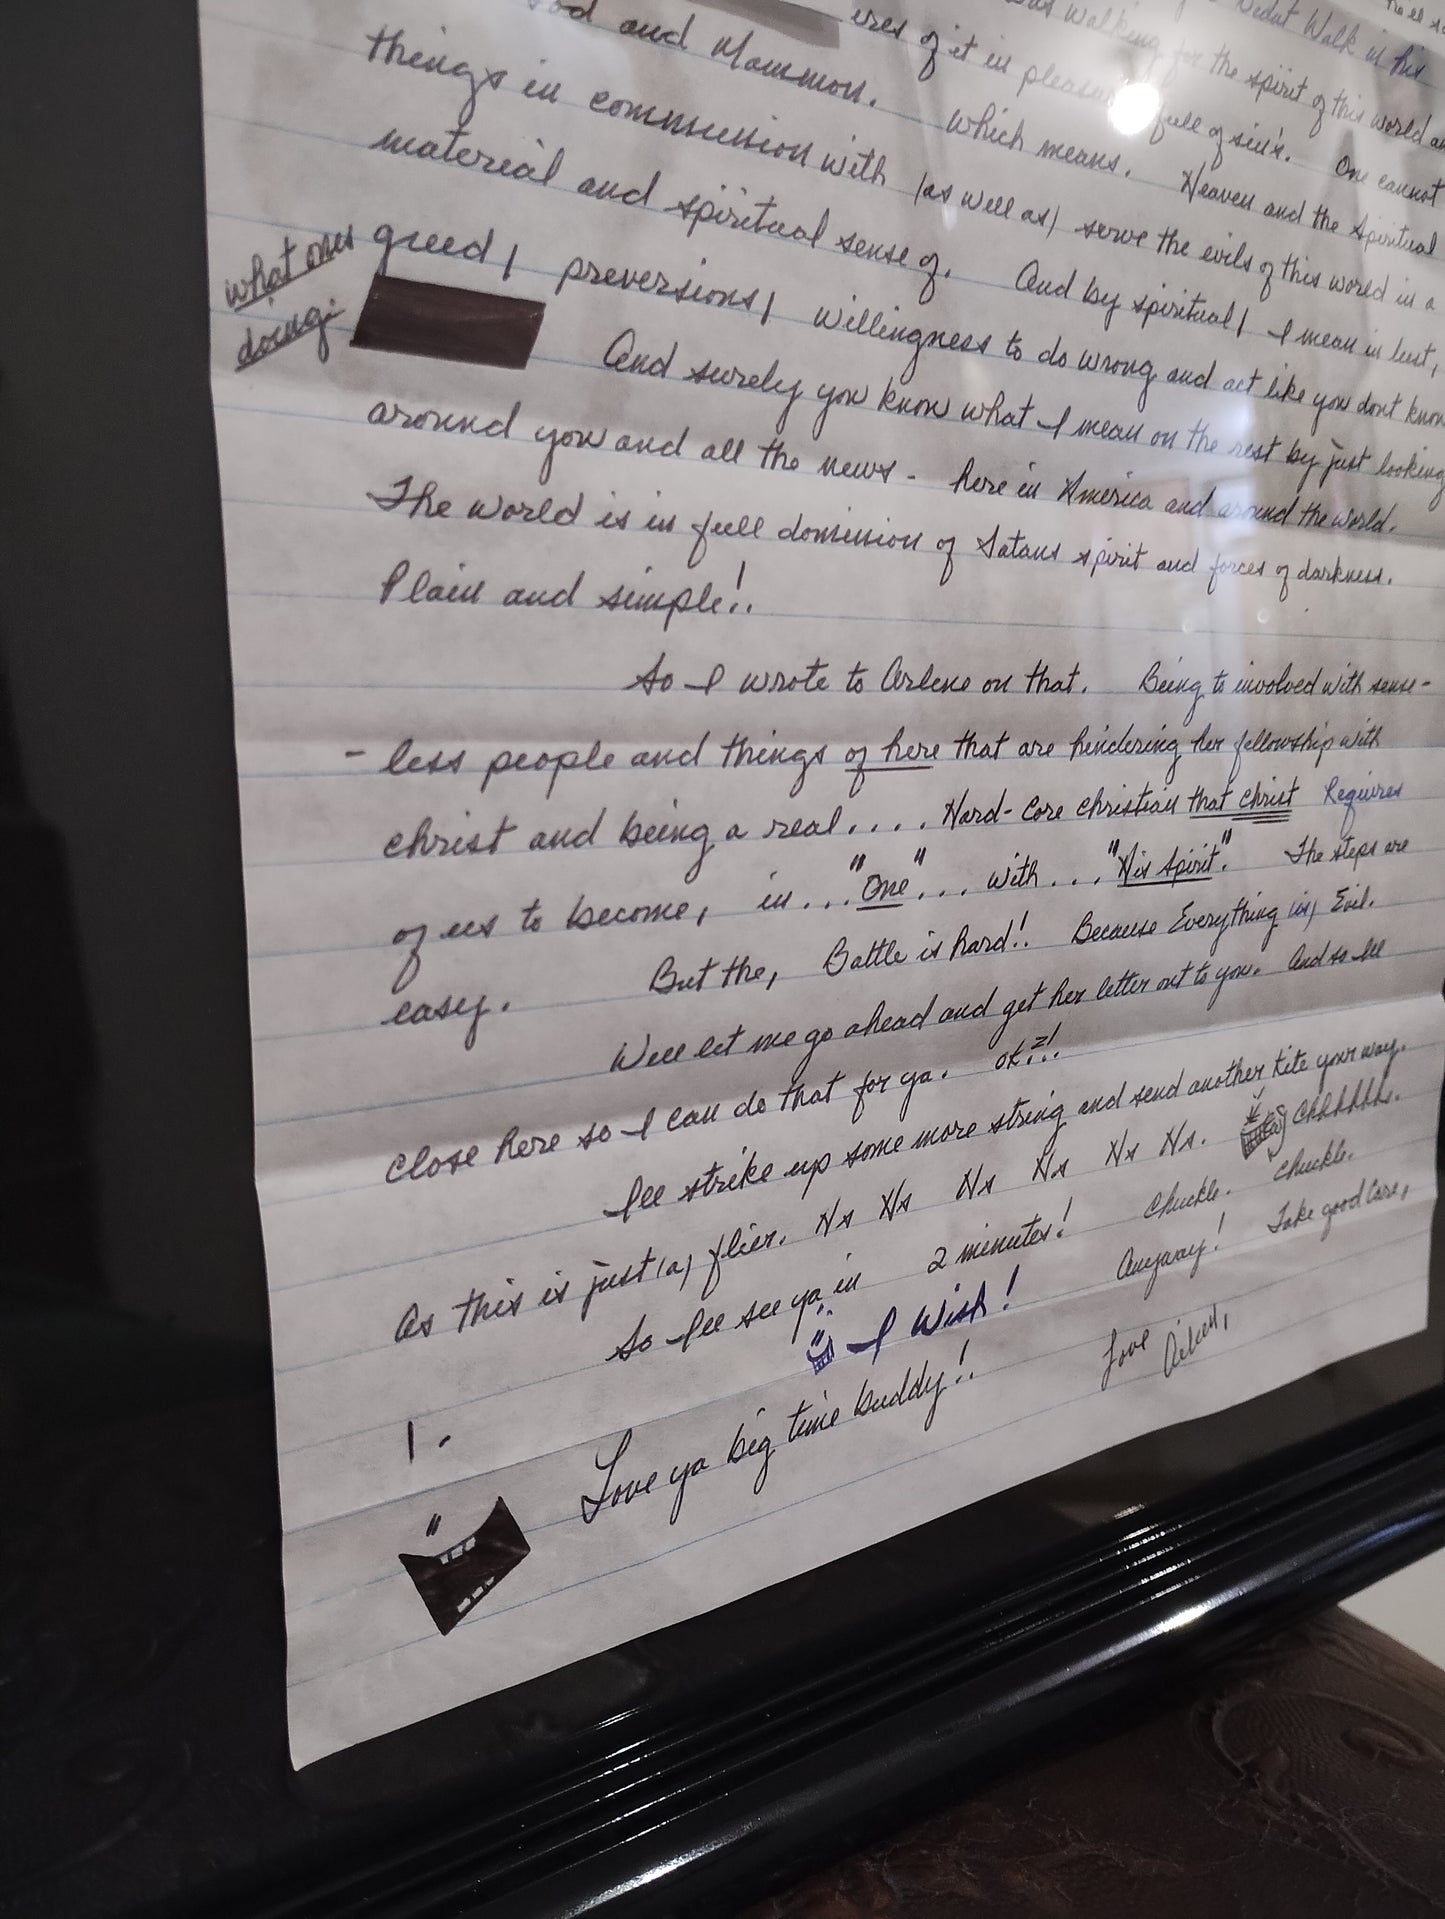 Walk in his
was walking for the spirit of this world
of it in pleasures full of sin's. One cannot
God and Mammon. Which means. Heaven and the Spiritual
things in communion with (as well as) serve the evils of this world in a
material and spiritual sense of. And by spiritual, I mean in lust,
greed, preversions, willingness to do wrong and act like you dont know
what ones
doing.
And surely you know what I mean on the rest by just looking
around you and all the news - here in America and around the world.
The world is in full dominion of Satans spirit and forces of darkness.
Plain and simple!.
So I wrote to Arlene on that. Being to involved with sense-
- less people and things of here that are hindering her fellowship with
christ and being a real.... Hard-Core christian that christ Requires
of us to become, in..."One"... with..."His Spirit". The steps are
easy. But the, Battle is hard!. Because Everything is, Evil.
Well let me go ahead and get her letter out to you. And so Ill
close here so I can do that for ya. ok..?!
Ill strike up some more string and send another kite your way.
As this is just (a) flier. Ha Ha Ha Ha Ha Ha. Chhhhhh.
So Ill see ya in 2 minutes! Chuckle. Chuckle.
I Wish! Anyway! Take good Care,
Love ya big time buddy!! Love